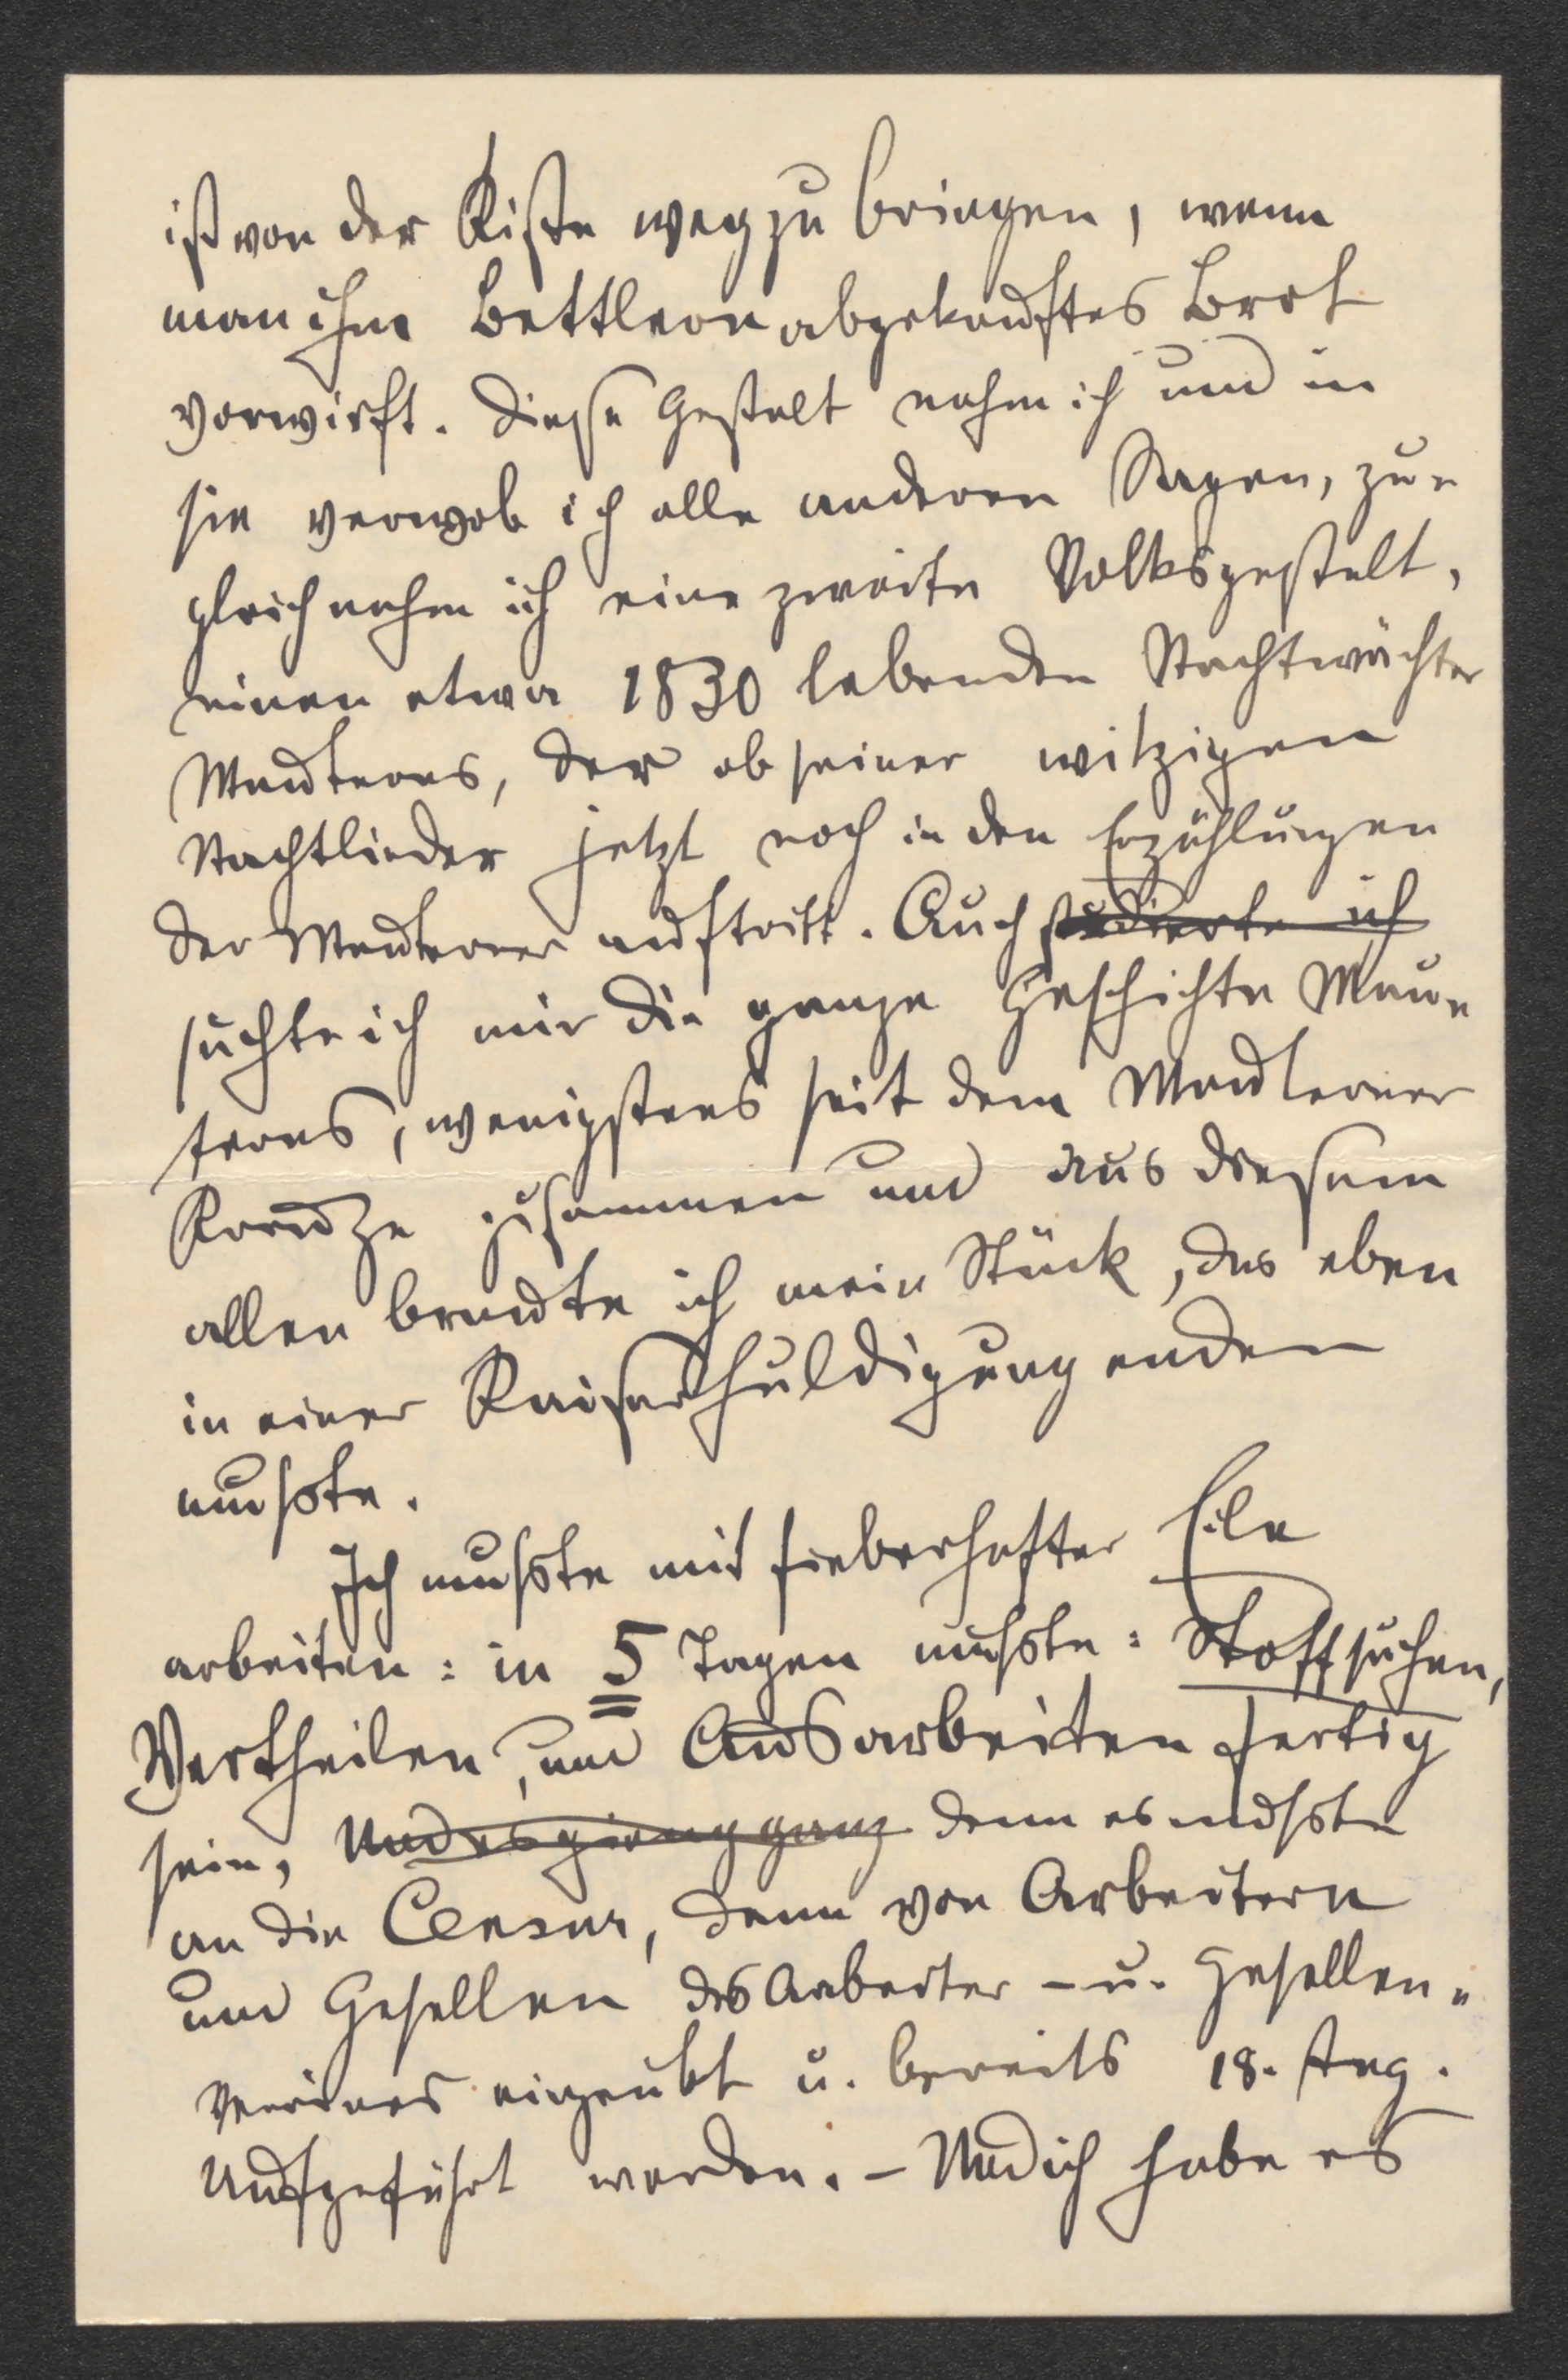 ist von der Kiste wegzubringen, wenn
man ihm Bettlern abgekauftes Brot
vorwirft. Diese Gestalt nahm ich und in
sie verwob ich alle anderen Sagen, zu-
gleich nahm ich eine zweite Volksgestalt,
einen etwa 1830 lebenden Nachtwächter
Mauterns, der ob seiner witzigen
Nachtlieder jetzt noch in den Erzählungen
der Mauterner auftritt. Auch studierte ich
suchte ich mir die ganze Geschichte Mau-
terns, wenigstens seit dem Mauterner
Kreuze zusammen und aus diesem
allen braute ich mein Stück, das eben
in einer Kaiserhuldigung enden
musste.
Ich musste mit fieberhafter Eile
arbeiten: in 5 Tagen musste: Stoffsuchen,
Vertheilen, und Ausarbeiten fertig
sein, Und es gieng ganz denn es musste
an die Censur, dann von Arbeitern
und Gesellen des Arbeiter- u. Gesellen-
Vereines eingeübt u. bereits 18. Aug.
Aufgeführt werden. – Und ich habe es